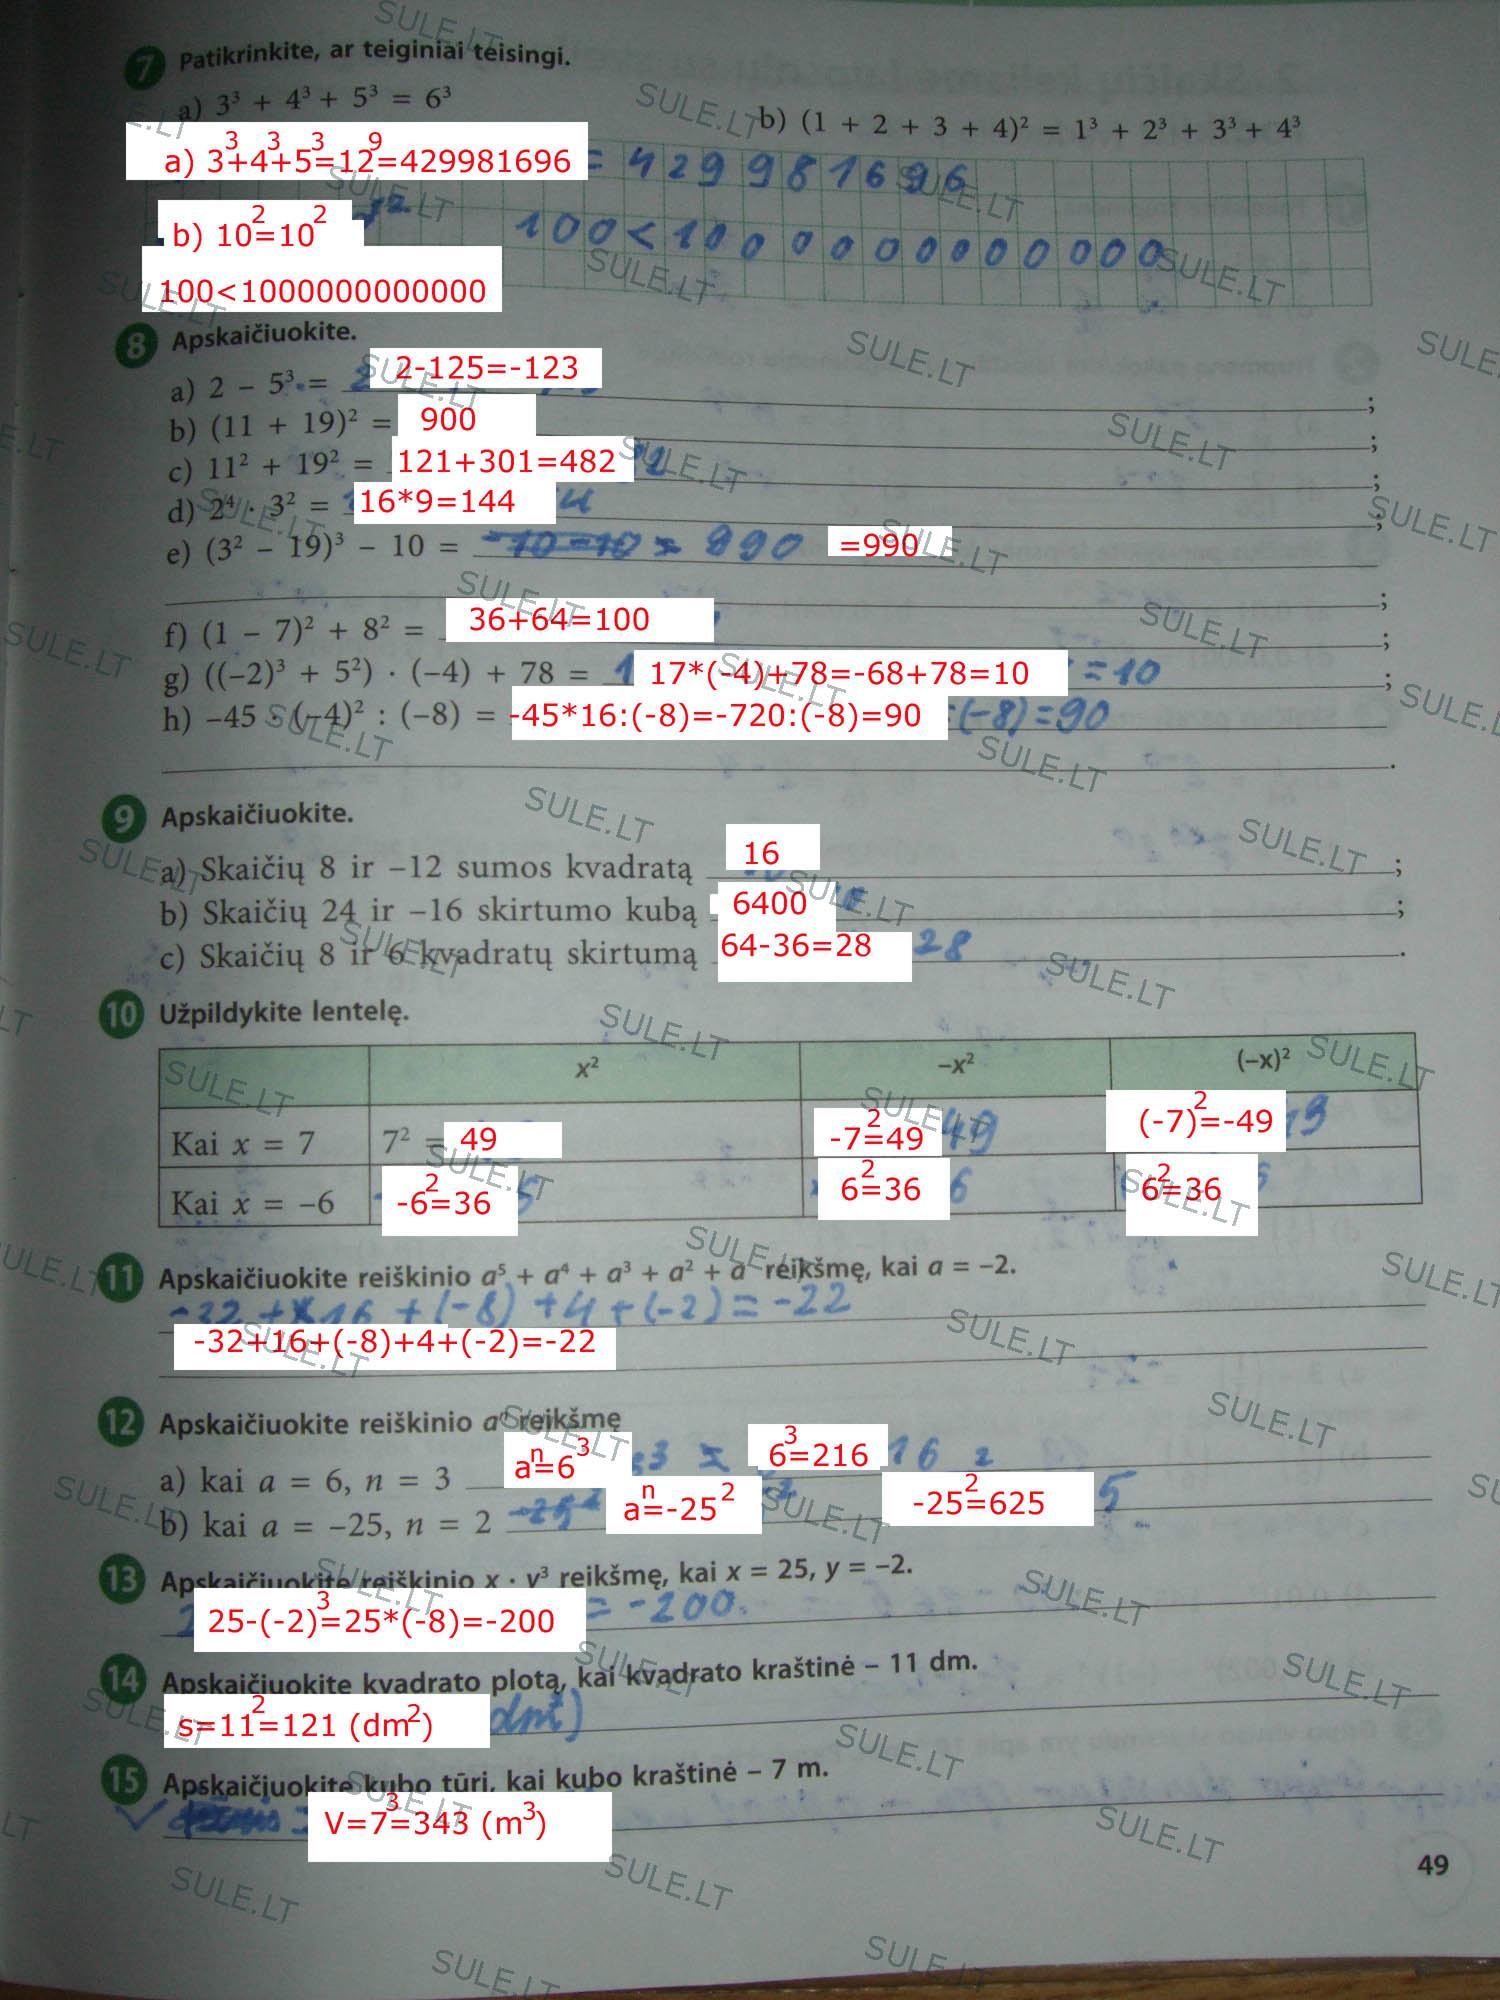 7 Patikrinkite, ar teiginiai teisingi.
a) 3³ + 4³ + 5³ = 6³
b) (1 + 2 + 3 + 4)² = 1³ + 2³ + 3³ + 4³
a) 3³+4³+5³=12⁹=429981696 = 429981696
b) 10²=10² 100<1000000000000
100<1000000000000
8 Apskaičiuokite.
a) 2 – 5³ = 2-125=-123 ;
b) (11 + 19)² = 900 ;
c) 11² + 19² = 121+301=482 ;
d) 2⁴ · 3² = 16*9=144 ;
e) (3² – 19)³ – 10 = -10-10= 990 =990
;
f) (1 – 7)² + 8² = 36+64=100 ;
g) ((–2)³ + 5²) · (–4) + 78 = 17*(-4)+78=-68+78=10 =10 ;
h) –45 · (–4)² : (–8) = -45*16:(-8)=-720:(-8)=90 :(-8)=90
.
9 Apskaičiuokite.
a) Skaičių 8 ir –12 sumos kvadratą 16 ;
b) Skaičių 24 ir –16 skirtumo kubą 6400 ;
c) Skaičių 8 ir 6 kvadratų skirtumą 64-36=28 28 .
10 Užpildykite lentelę.
x² –x² (–x)²
Kai x = 7 7² = 49 -7²=49 49 (-7)²=-49
Kai x = –6 -6²=36 6²=36 6 6²=36
11 Apskaičiuokite reiškinio a⁵ + a⁴ + a³ + a² + a reikšmę, kai a = –2.
-32 + 16 + (-8) + 4 + (-2) = -22
-32+16+(-8)+4+(-2)=-22
12 Apskaičiuokite reiškinio aⁿ reikšmę
a) kai a = 6, n = 3 aⁿ=6³ 6³=216 16
b) kai a = –25, n = 2 -25² aⁿ=-25² -25²=625 5
13 Apskaičiuokite reiškinio x · y³ reikšmę, kai x = 25, y = –2.
25-(-2)³=25*(-8)=-200 = -200
14 Apskaičiuokite kvadrato plotą, kai kvadrato kraštinė – 11 dm.
s=11²=121 (dm²) dm²)
15 Apskaičiuokite kubo tūrį, kai kubo kraštinė – 7 m.
V=7³=343 (m³)
49
SULE.LT